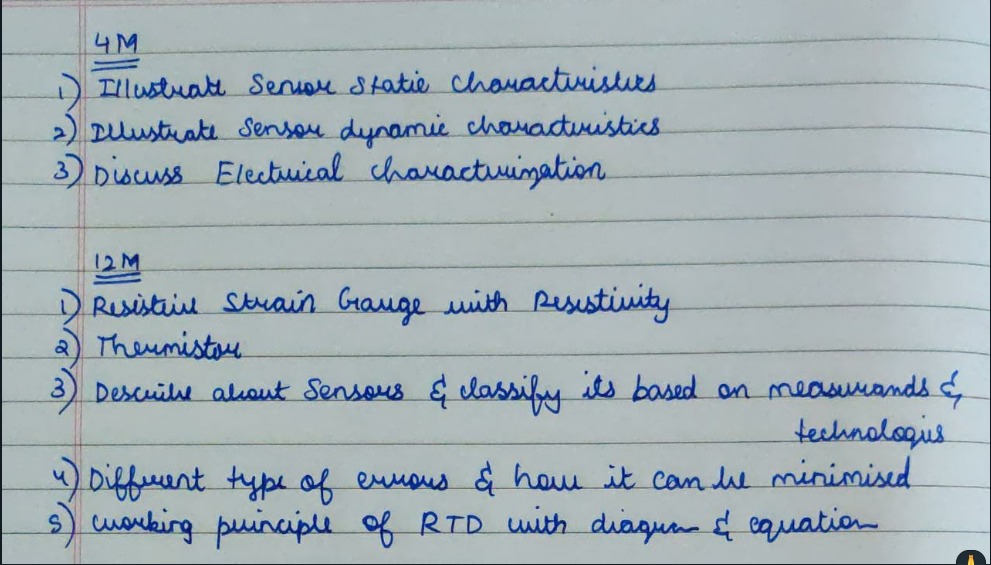 4M
1) Illustrate Sensor Static characteristics
2) Illustrate Sensor dynamic characteristics
3) Discuss Electrical characterization
12M
1) Resistive Strain Gauge with Resistivity
2) Thermistor
3) Describe about Sensors & classify its based on measurands &
technologies
4) Different type of errors & how it can be minimised
5) working principle of RTD with diagram & equation